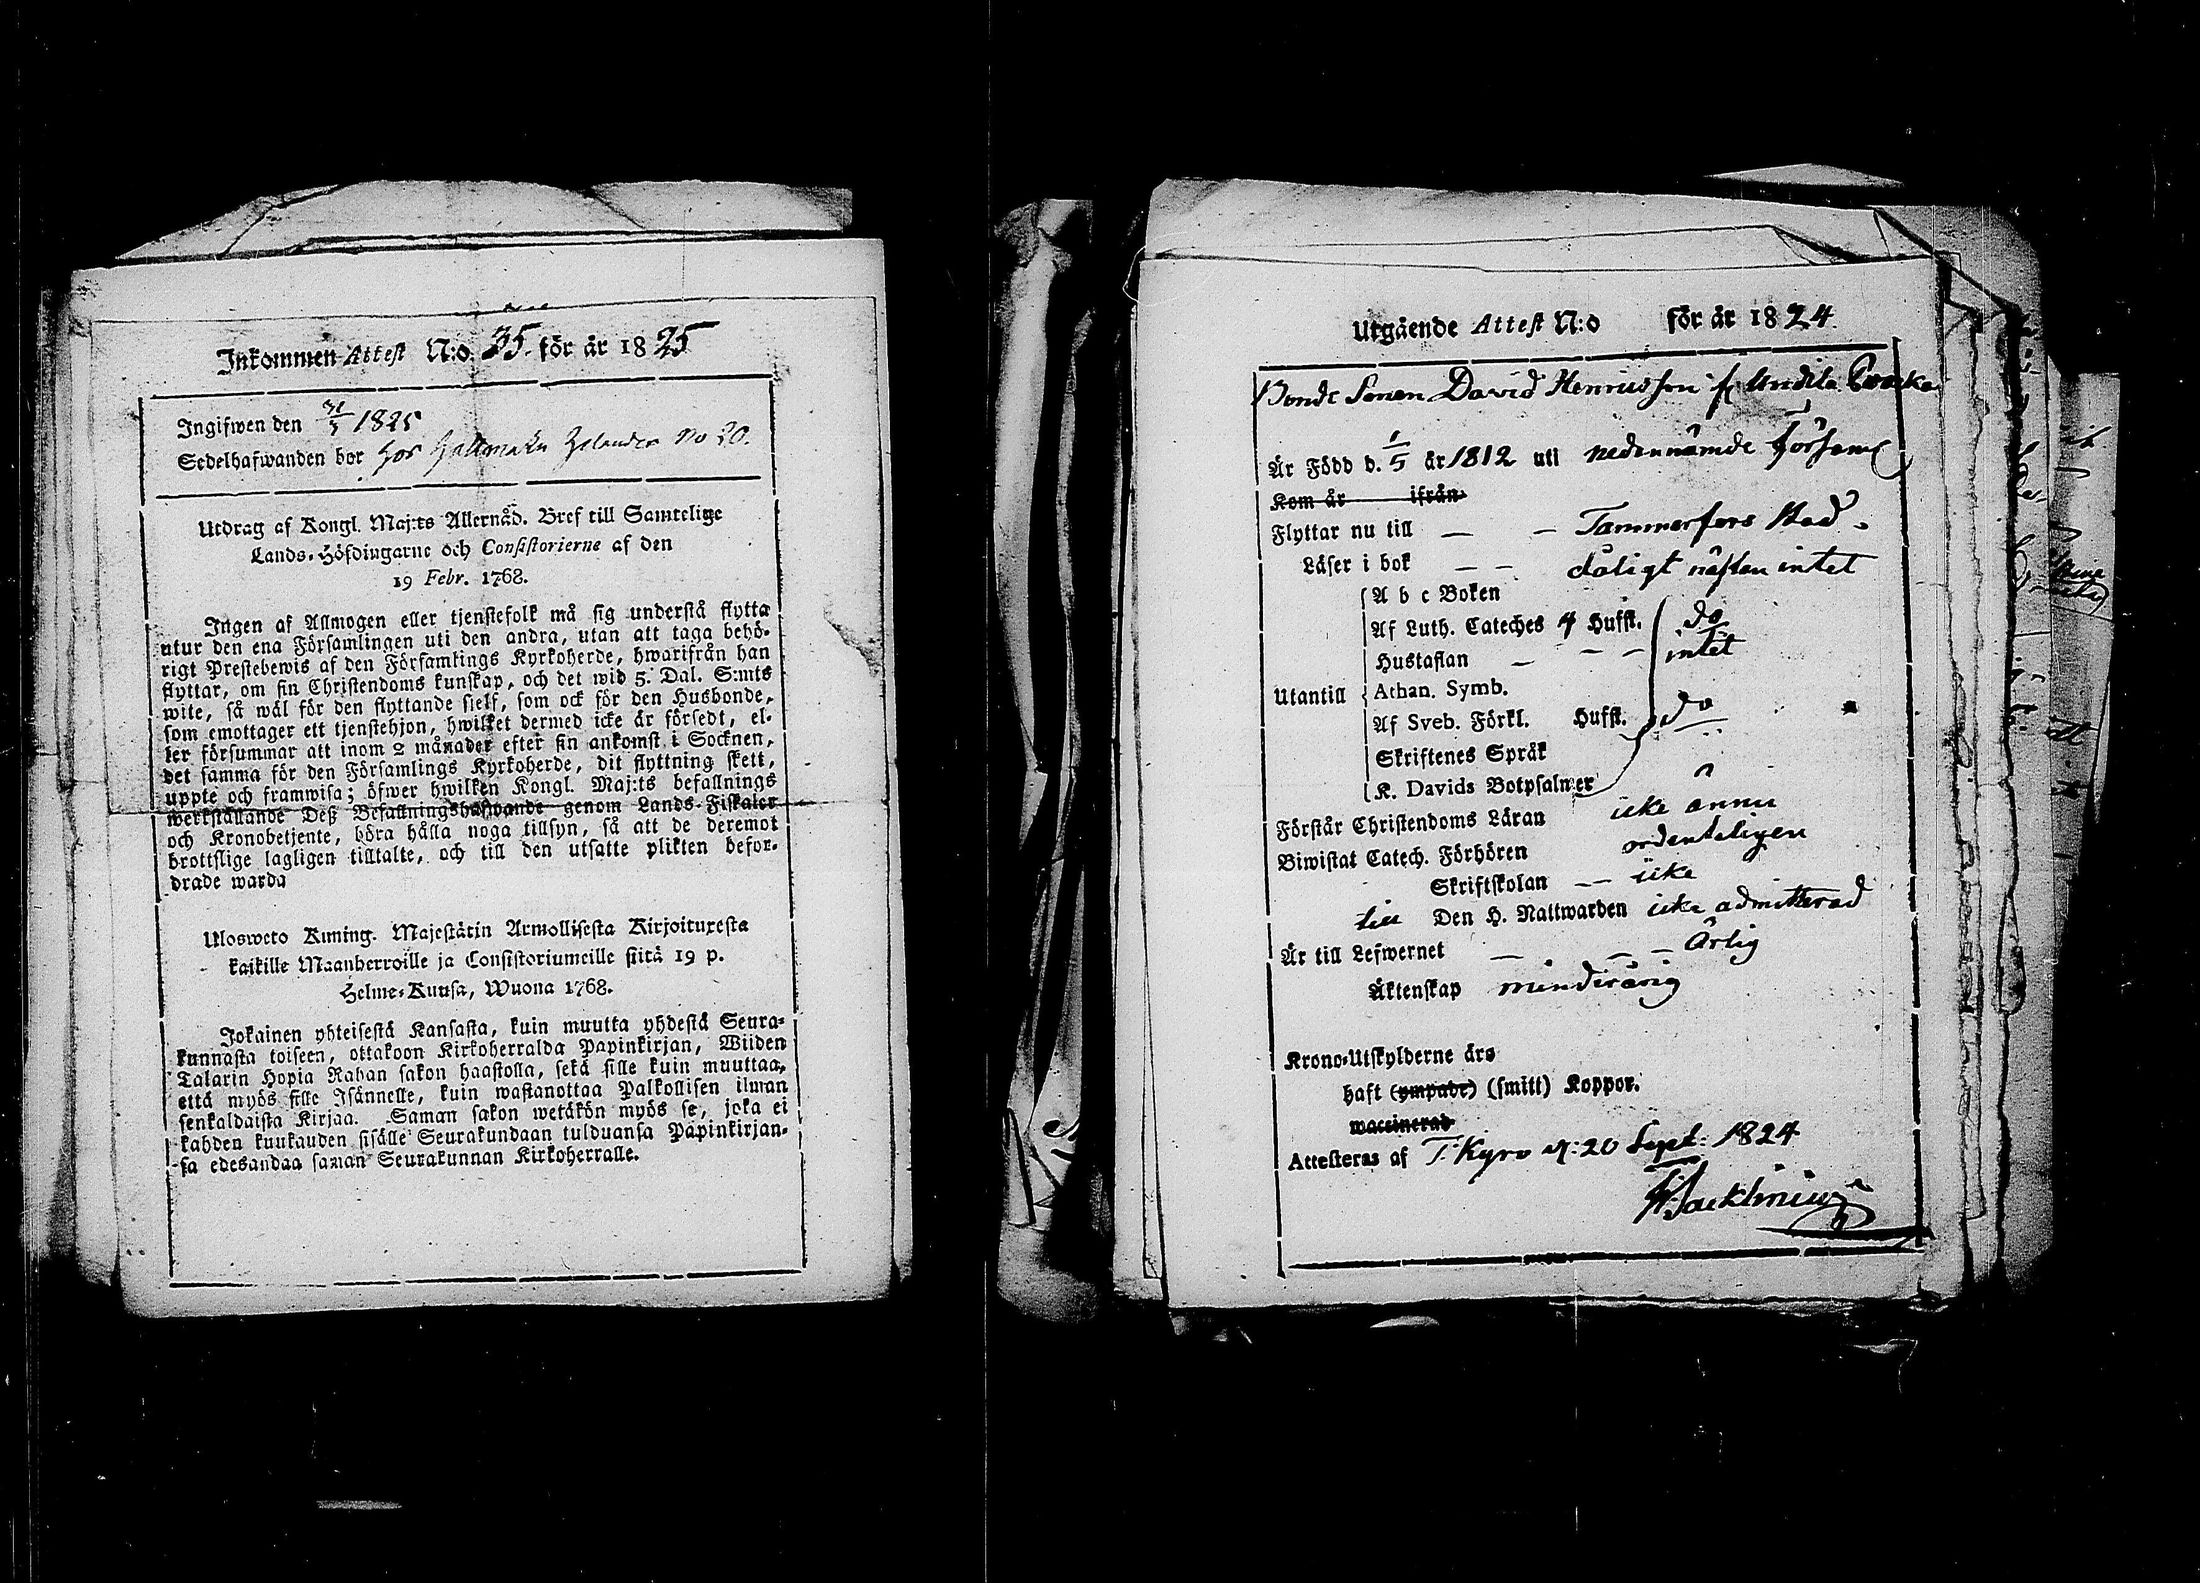 Inkommen Attest N:o. 35. för är 1825
Ingifwen den 31/3 1825
Sedelhafwanden bor hos No 20.
Utdrag af Kongl. Maj:ts Allernåd. Bref till Samtelige
Lands-Höfdingarne och Consistorierne af den
19 Febr. 1768.
Ingen af Allmogen eller tjenstefolk må sig understå flytta
utur den ena Församlingen uti den andra, utan att taga behö-
rigt Prestebewis af den Församlings Kyrkoherde, hwarifrån han
flyttar, om sin Christendoms kunskap, och det wid 5. Dal. S:mts
wite, så wäl för den flyttande sielf, som ock för den Husbonde,
som emottager ett tjenstehjon, hwilket dermed icke är försedt, el-
ler försummar att inom 2 månader efter sin ankomst i Socknen,
det samma för den Församlings Kyrkoherde, dit flyttning skett,
uppte och framwisa; öfwer hwilken Kongl. Maj:ts befallnings
werkställande Deß Befallningshafwande genom Lands-Fiskaler
och Kronobetjente, böra hålla noga tillsyn, så att de deremot
brottslige lagligen tilltalte, och till den utsatte plikten befor-
drade warda
Ulosweto Kuning. Majestätin Armollisesta Kirjoituxesta
kaikille Maanherroille ja Consistoriumeille siitä 19 p.
Helme-Kuusa, Wuona 1768.
Jokainen yhteisestä Kansasta, kuin muutta yhdestä Seura-
kunnasta toiseen, ottakoon Kirkoherralda Papinkirjan, Wiiden
Talarin Hopia Rahan sakon haastolla, sekä sille kuin muuttaa,
että myös sille Isännelle, kuin wastanottaa Palkollisen ilman
senkaldaista Kirjaa. Saman sakon wetäkön myös se, joka ei
kahden kuukauden sisälle Seurakundaan tulduansa Papinkirjan-
sa edesandaa saman Seurakunnan Kirkoherralle.
Utgående Attest N:o för år 1824.
Bonde Sonen David Henricsson fr Undila
Är Född d. 1/5 år 1812 uti nedannämde Församl
Kom år ifrån
Flyttar nu till — — Tammerfors Stad.
Läser i bok — — dåligt nästan intet
A b c Boken
Af Luth. Cateches 4 Hufst. do
Hustaflan — — — intet
Utantill Athan. Symb.
Af Sveb. Förkl. Hufst. do
Skriftenes Språk
K. Davids Botpsalmer
Förstår Christendoms Läran icke ännu
Biwistat Catech. Förhören ordenteligen
Skriftskolan — — icke
till Den H. Nattwarden icke admitterad
Är till Lefwernet — — — Ärlig
Äktenskap minderårig
Krono-Utskylderne äro
haft (ympade) (smitt) Koppor.
waccinerad
Attesteras af T. Kyro d: 20 Sept: 1824